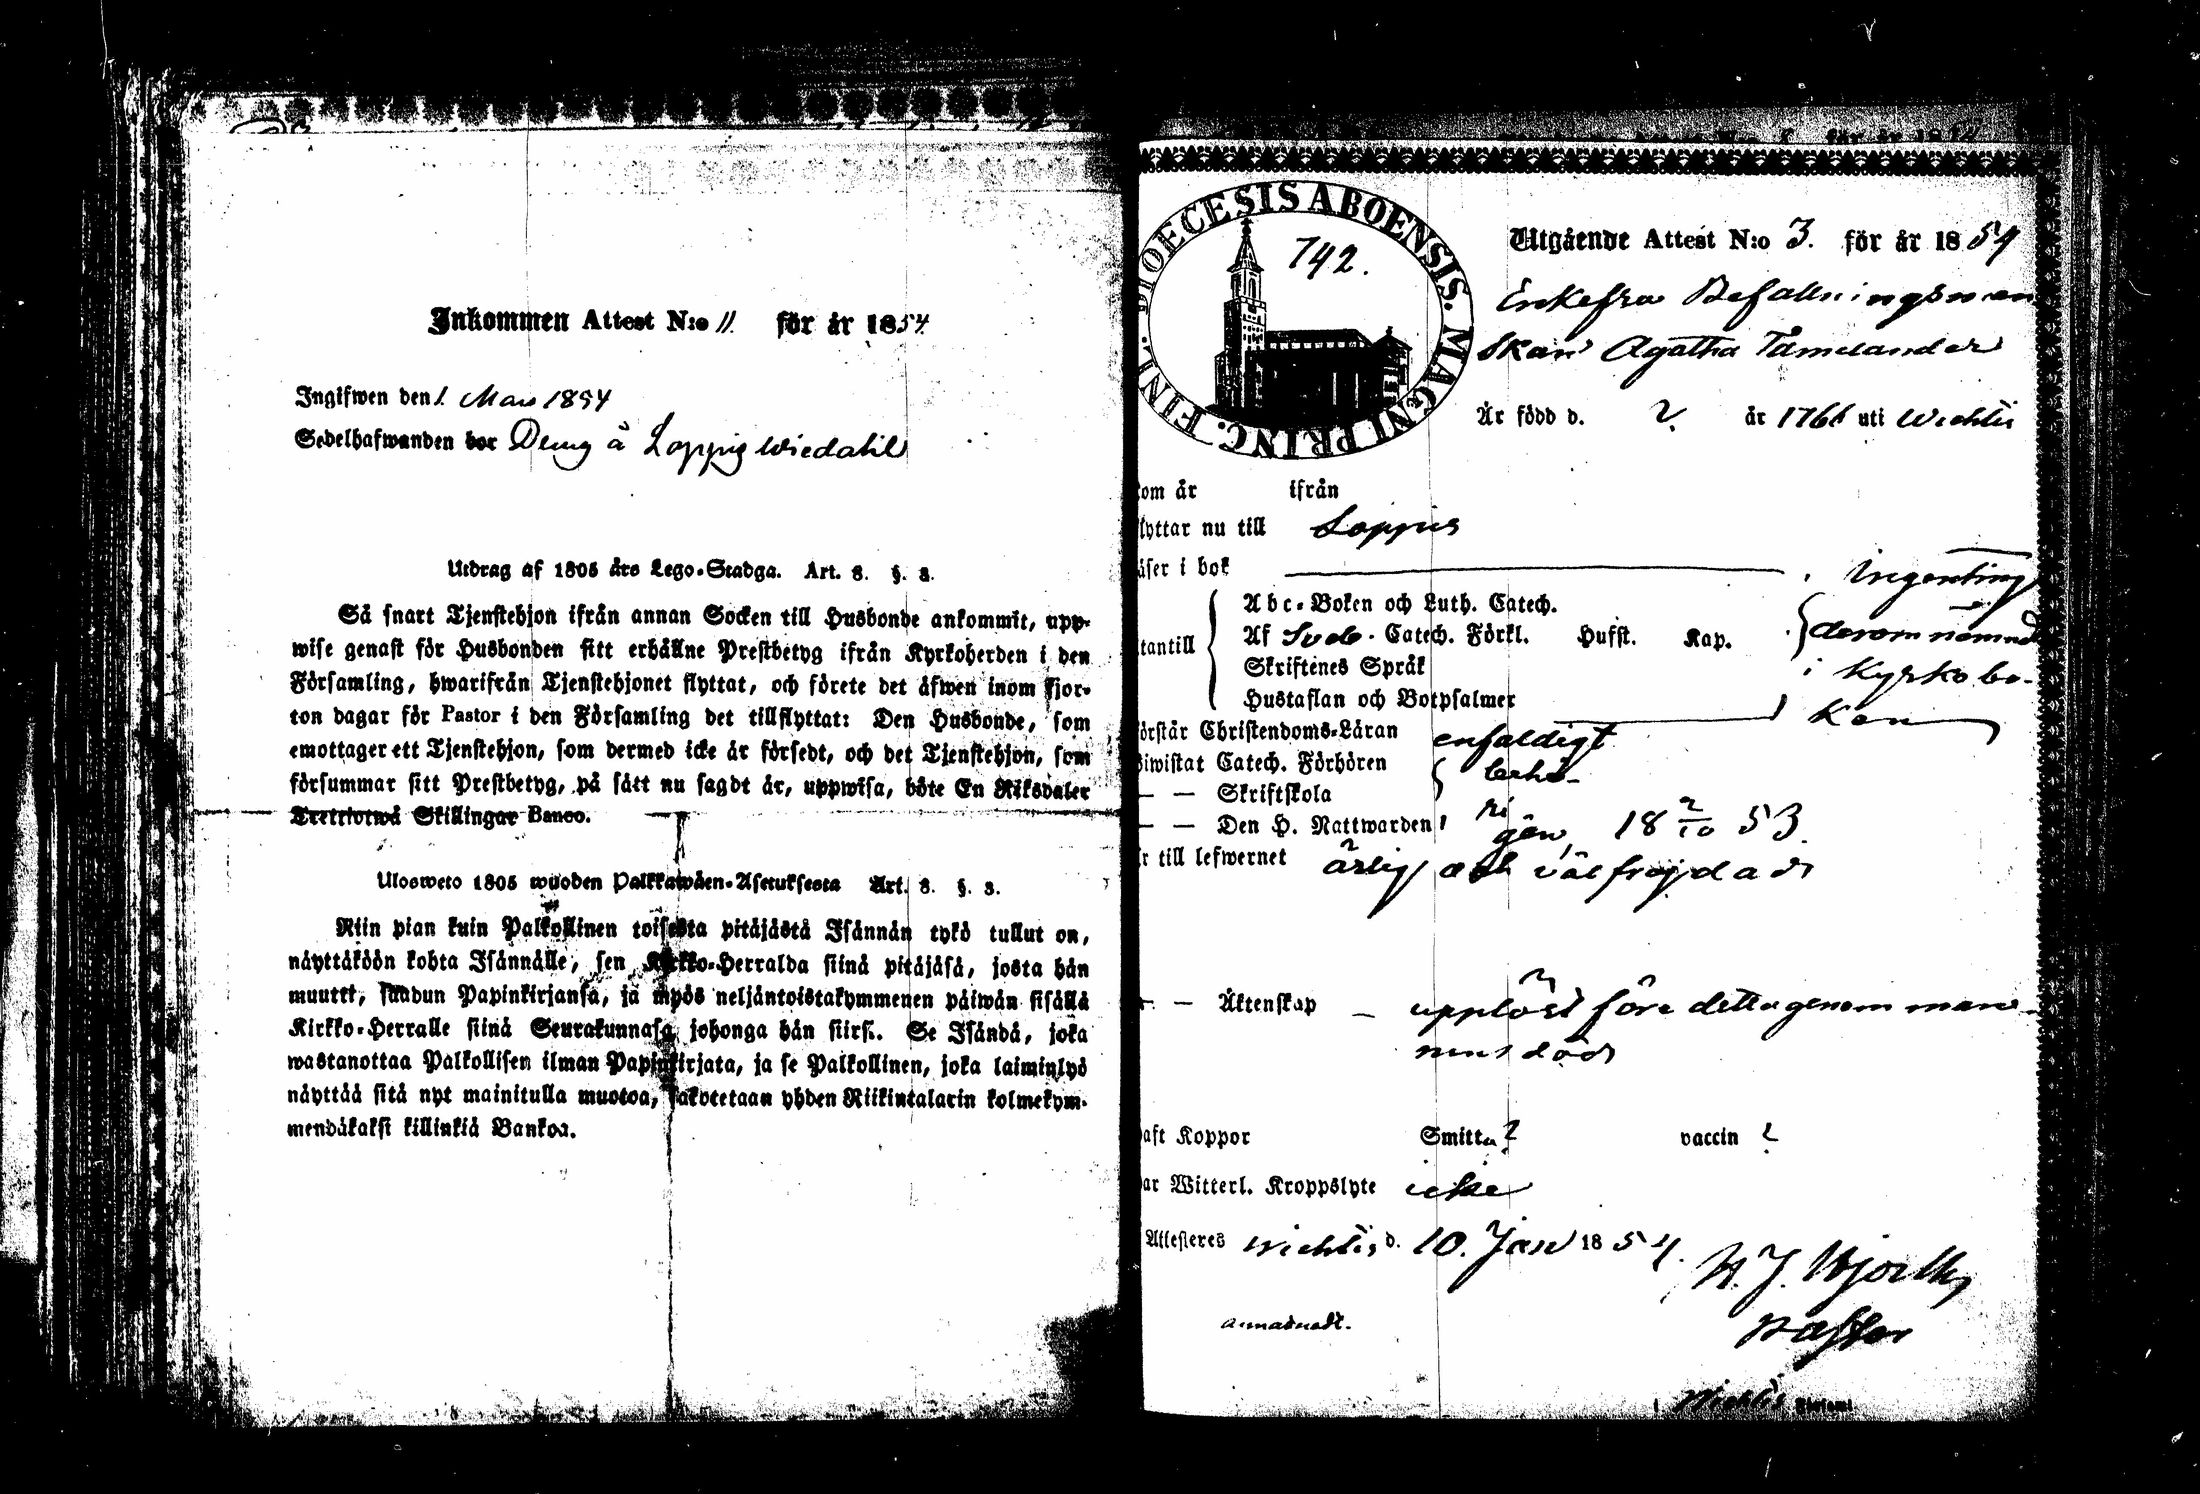 Inkommen Attest N:o 11. för år 1854
Ingifwen den 1. Mars 1854
Sedelhafwanden bor à Loppis
Utdrag af 1805 års Lego-Stadga. Art. 8. §. 3.
Så snart Tjenstehjon ifrån annan Socken till Husbonde ankommit, upp-
wise genast för Husbonden sitt erhållne Prestbetyg ifrån Kyrkoherden i den
Församling, hwarifrån Tjenstehjonet flyttat, och förete det äfwen inom fjor-
ton dagar för Pastor i den Församling det tillflyttat: Den Husbonde, som
emottager ett Tjenstehjon, som dermed icke är försedt, och det Tjenstehjon, som
försummar sitt Prestbetyg, på sätt nu sagdt är, uppwisa, böte En Riksdaler
Trettiotwå Skillingar Banco.
Ulosweto 1805 wuoden Palkkawäen-Asetuksesta Art. 8. §. 3.
Niin pian kuin Palkollinen toisesta pitäjästä Isännän tykö tullut on,
näyttäköön kohta Isännälle, sen Kirkko-Herralda siinä pitäjäsä, josta hän
muutti, saadun Papinkirjansa, ja myös neljäntoistakymmenen päiwän sisällä
Kirkko-Herralle siinä Seurakunnasa johonga hän siirsi. Se Isändä, joka
wastanottaa Palkollisen ilman Papinkirjata, ja se Palkollinen, joka laiminlyö
näyttää sitä nyt mainitulla muotoa, sakotetaan yhden Riikintalarin kolmekym-
mendäkaksi killinkiä Bankoa.
DIOECESIS ABOENSIS. MAGNI PRINC. FINL.
742.
Utgående Attest N:o 3. för år 1854
Enkefru Befallningsman
skan Agatha Tamelander
Är född d. ? år 1761 uti Wichtis
kom år ifrån
flyttar nu till Loppis
läser i bok Ingenting
Abc-Boken och Luth. Catech.
utantill Af Sveb. Catech. Förkl. Husst. Kap. derom nämnd
Skriftenes Språk i Kyrkobo-
Hustaflan och Botpsalmer ken
förstår Christendoms-Läran enfaldigt
biwistat Catech. Förhören behö-
— — Skriftskola ri
— — Den H. Nattwarden gen, 18 2/10 53.
är till lefwernet ärlig och välfrejdad
— Äktenskap — upplöst före detta genom man-
nens död
haft Koppor Smitta ? vaccin ?
har Witterl. Kroppslyte icke
Attesteras Wichtis d. 10. Jan 1854.
Pastor
i Wichtis